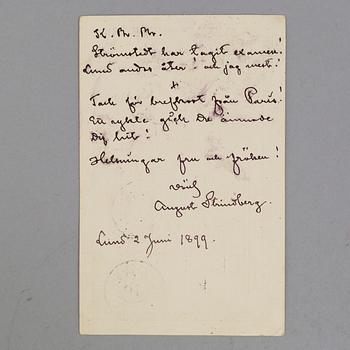 K. Br. Br.
Strömstedt har tagit examen!
Lund andas åter! och jag mest!
+
Tack för brefkort från Paris!
En rykte gick De ämnade
Dig hit!
Helsningar fru och fröken!
Vänl.
August Strindberg.
Lund 2 Juni 1899.